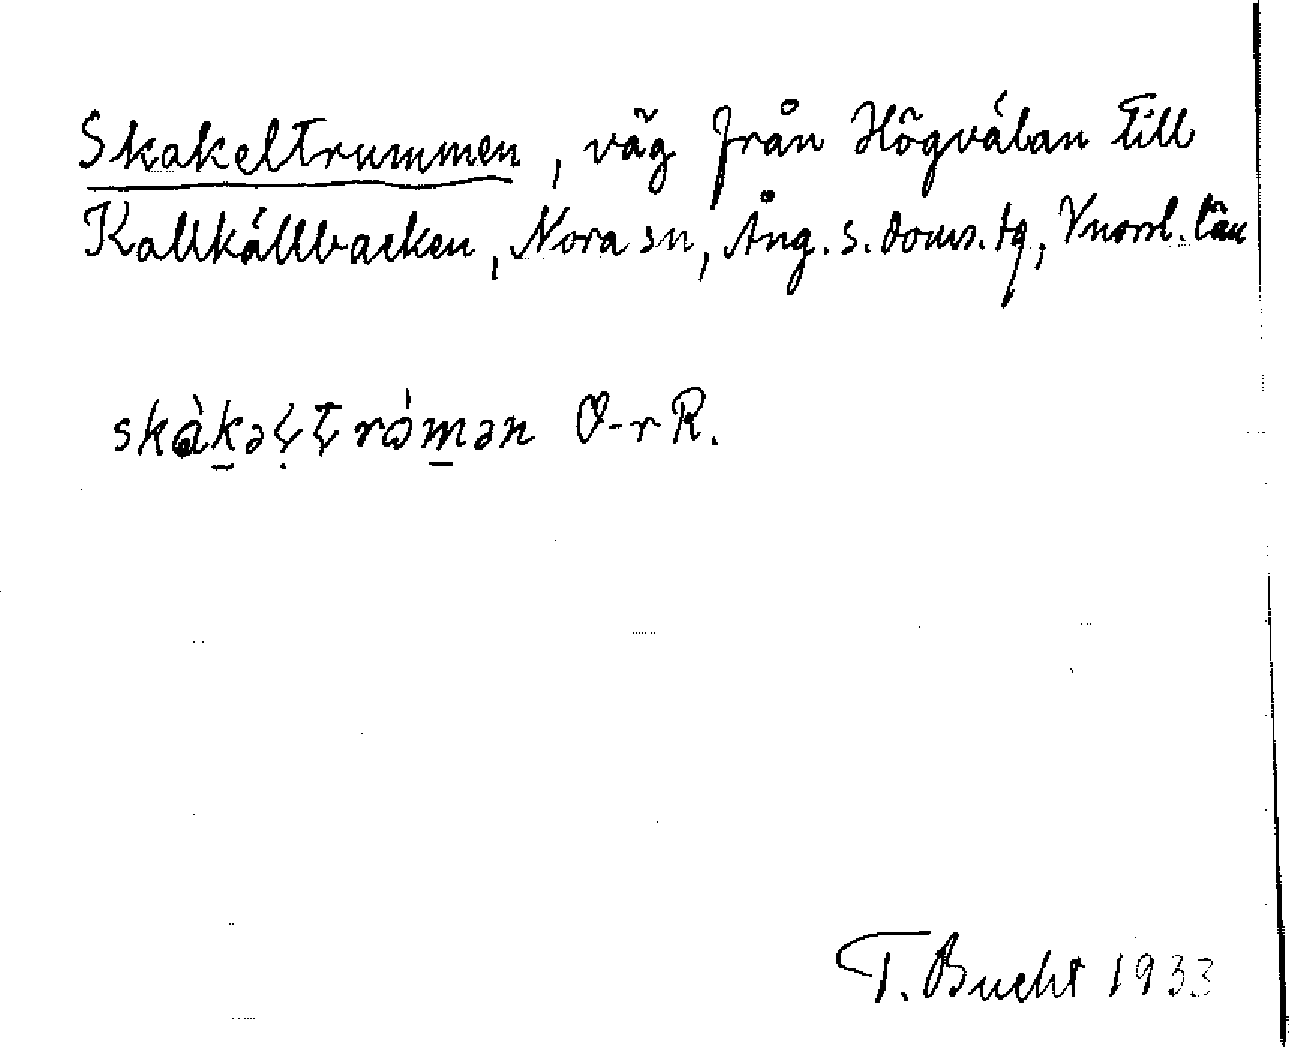 Skakeltrummen, väg från Högvålan till
Kallkällbacken, Nora sn, Ång. s. doms. tg, Vnorrl. län
skàkəʟtrómən O-r R.
T. Bucht 1933